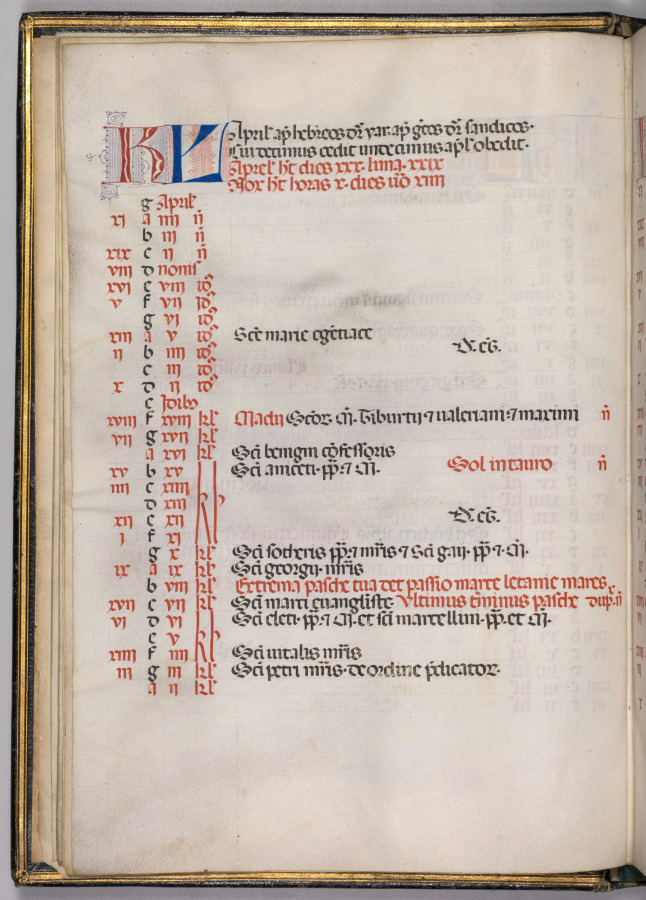 KL April ap hebreos dr yar. ap gcos dr sandicos.
undecimus obedit.
Aprel' ht dies xxx. luna. xxix
Nox ht horas x. dies uo xiiii
g April
xi a iiii n
b iii n
xix c ii n
viii d nonis
xvi e viii id
v f vii id
g vi id
xiii a v id Sce marie egetiace
ii b iiii id D. eg.
c iii id
x d ii id
e Idib
xviii f xviii kl Madii Scor. M. Tiburtii ⁊ ualeriani ⁊ maximi n
vii g xvii kl
a xvi kl Sci benigni cofessoris
xv b xv Sci aniceti. pp. ⁊ M. Sol in tauro n
iiii c xiiii
d xiii kl
xii e xii D. eg.
i f xi
g x kl Sci sotheris pp. ⁊ mris ⁊ Sci gaii. pp ⁊. M.
ix a ix kl Sci georgii. mris
b viii kl Extrema pasche tua det passio marte letanie mares
xvii c vii kl Sci marci euangliste Vltimus tminus pasche dup. n
vi d vi Sci cleti. pp. ⁊ M. et sci martellini. pp. et M.
e v kl
xiiii f iiii Sci uitalis mris
iii g iii kl Sci petri mris. de ordine pdicator.
a ii kl